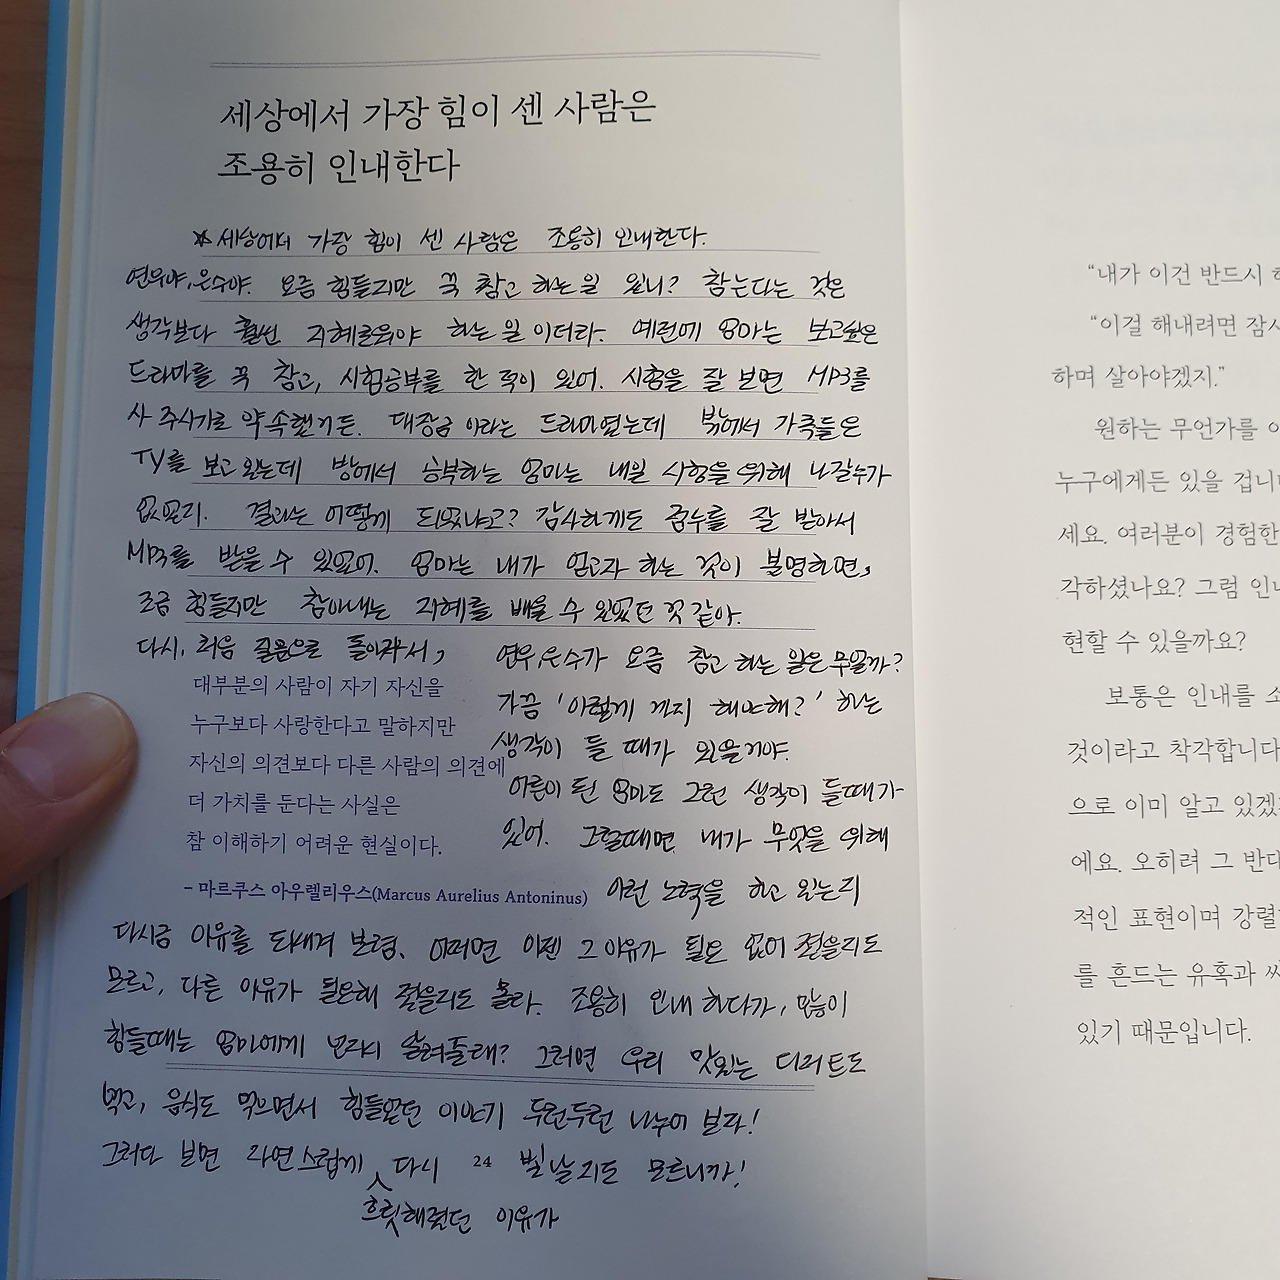 세상에서 가장 힘이 센 사람은
조용히 인내한다
☆ 세상에서 가장 힘이 센 사람은 조용히 인내한다.
연우야, 은수야. 요즘 힘들지만 꾹 참고 하는 일 있니? 참는다는 것은
생각보다 훨씬 지혜로워야 하는 일이더라. 예전에 엄마는 보고싶은
드라마를 꾹 참고, 시험공부를 한 적이 있어. 시험을 잘 보면 MP3를
사 주시기로 약속했거든. 대장금 이라는 드라마였는데 밖에서 가족들은
TV를 보고 있는데 방에서 공부하는 엄마는 내일 시험을 위해 나갈수가
없었지. 결과는 어떻게 되었냐고? 감사하게도 점수를 잘 받아서
MP3를 받을 수 있었어. 엄마는 내가 얻고자 하는 것이 분명하면,
조금 힘들지만 참아내는 지혜를 배울 수 있었던 것 같아.
다시, 처음 질문으로 돌아가서,
연우, 은수가 요즘 참고 하는 일은 무얼까?
가끔 '이렇게 까지 해야해?' 하는
생각이 들 때가 있을거야.
어른이 된 엄마도 그런 생각이 들때가
있어. 그럴때면 내가 무엇을 위해
이런 노력을 하고 있는지
다시금 이유를 되새겨 보렴. 어쩌면 이젠 그 이유가 필요 없어 졌을지도
모르고, 다른 이유가 필요해 졌을지도 몰라. 조용히 인내 하다가, 많이
힘들때는 엄마에게 반드시 알려줄래? 그러면 우리 맛있는 디저트도
먹고, 음식도 먹으면서 힘들었던 이야기 두런두런 나누어 보자!
그러다 보면 자연스럽게 흐릿해졌던 이유가 다시 빛날지도 모르니까!
대부분의 사람이 자기 자신을
누구보다 사랑한다고 말하지만
자신의 의견보다 다른 사람의 의견에
더 가치를 둔다는 사실은
참 이해하기 어려운 현실이다.
- 마르쿠스 아우렐리우스(Marcus Aurelius Antoninus)
24
"내가 이건 반드시
"이걸 해내려면 잠시
하며 살아야겠지."
원하는 무언가를
누구에게든 있을 겁니
세요. 여러분이 경험한
각하셨나요? 그럼 인
현할 수 있을까요?
보통은 인내를 소
것이라고 착각합니다
으로 이미 알고 있겠
에요. 오히려 그 반대
적인 표현이며 강렬
를 흔드는 유혹과 싸
있기 때문입니다.